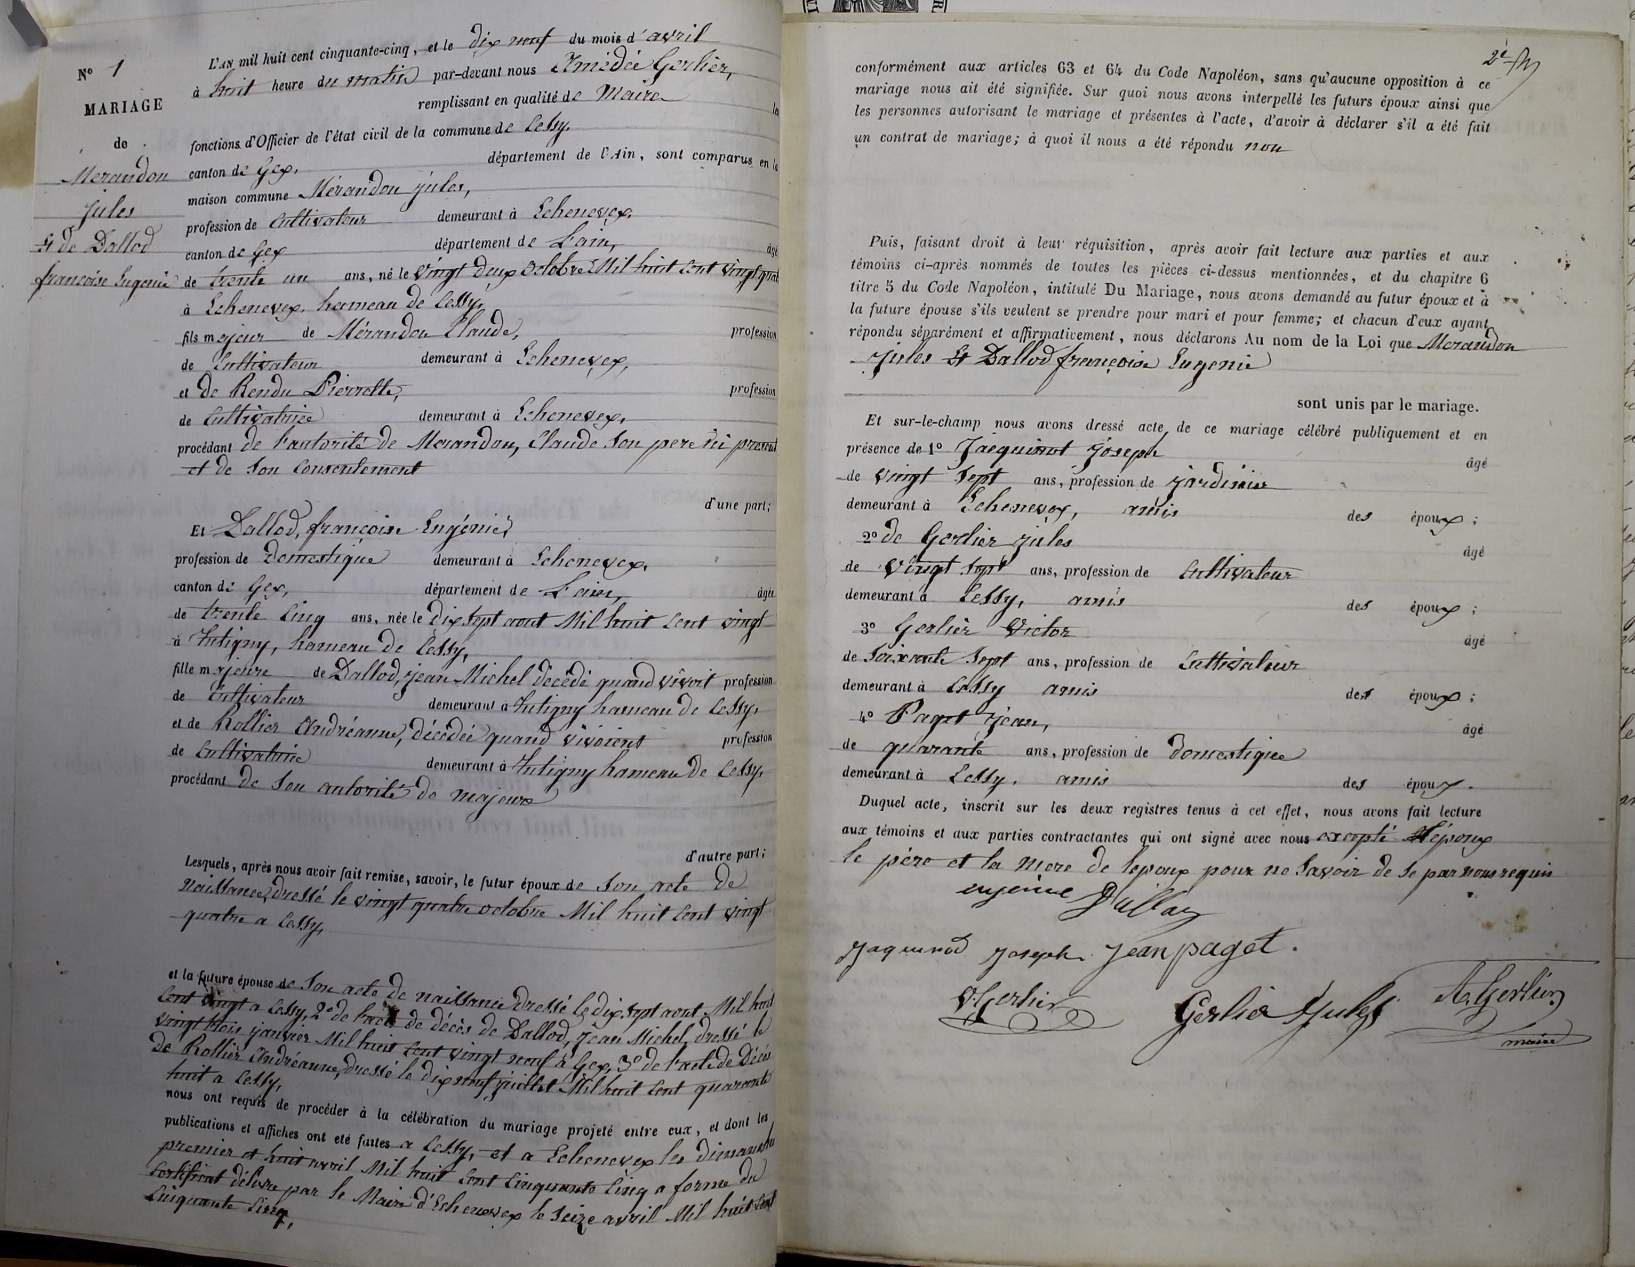 N° 1
MARIAGE
de
Merandon
Jules
Et de Dallod
françoise Eugenie
L'AN mil huit cent cinquante-cinq, et le dix neuf du mois d'avril
à huit heure du matin par-devant nous Amédée Gerlier,
remplissant en qualité de Maire les
fonctions d'Officier de l'état civil de la commune de Cessy.
canton de Gex. département de l'Ain, sont comparus en la
maison commune Mérandon Jules,
profession de Cultivateur demeurant à Echenevex.
canton de Gex département de L'ain, âgé
de trente un ans, né le vingt deux octobre Mil huit Cent vingt quatre
à Echenevex. hameau de Cessy,
fils majeur de Mérandon Claude, profession
de Cultivateur demeurant à Echenevex,
et de Rendu Pierrette, profession
de Cultivatrice demeurant à Echenevex.
procédant de l'autorité de Merandon, Claude Son pere ici present
et de Son Consentement
d'une part;
Et Dallod, françoise Eugénie,
profession de Domestique demeurant à Echenevex.
canton de Gex, département de L'ain, âgée
de trente Cinq ans, née le Dix Sept aout Mil huit Cent vingt
à Tutigny, hameau de Cessy,
fille majeure de Dallod, Jean Michel décédé quand vivoit profession
de Cultivateur demeurant à Tutigny hameau de Cessy.
et de Rollier Andréanne, décédée quand vivoient profession
de Cultivatrice demeurant à Tutigny hameau de Cessy.
procédant de Son autorité de majeure
d'autre part;
Lesquels, après nous avoir fait remise, savoir, le futur époux de Son acte de
naissance, dressé le vingt quatre octobre Mil huit Cent vingt
quatre a Cessy,
et la future épouse de Son acte de naissance dressé le dix sept aout Mil huit
Cent vingt a Cessy, 2° de l'acte de décès de Dallod, Jean Michel, dressé le
vingt trois janvier Mil huit Cent vingt neuf à Gex, 3° de l'acte de Décès
de Rollier Andréanne, dressé le dix neuf juillet Mil huit Cent quarante
huit a Cessy,
nous ont requis de procéder à la célébration du mariage projeté entre eux, et dont les
publications et affiches ont été faites a Cessy, et a Echenevex les dimanches
premier et huit avril Mil huit Cent Cinquante Cinq a forme du
Certificat délivré par le Maire d'Echenevex le Seize avril Mil huit Cent
Cinquante Cinq,
2e
conformément aux articles 63 et 64 du Code Napoléon, sans qu'aucune opposition à ce
mariage nous ait été signifiée. Sur quoi nous avons interpellé les futurs époux ainsi que
les personnes autorisant le mariage et présentes à l'acte, d'avoir à déclarer s'il a été fait
un contrat de mariage; à quoi il nous a été répondu non
Puis, faisant droit à leur réquisition, après avoir fait lecture aux parties et aux
témoins ci-après nommés de toutes les pièces ci-dessus mentionnées, et du chapitre 6
titre 5 du Code Napoléon, intitulé Du Mariage, nous avons demandé au futur époux et à
la future épouse s'ils veulent se prendre pour mari et pour femme; et chacun d'eux ayant
répondu séparément et affirmativement, nous déclarons Au nom de la Loi que Merandon
Jules Et Dallod françoise Eugenie
sont unis par le mariage.
Et sur-le-champ nous avons dressé acte de ce mariage célébré publiquement et en
présence de 1° Jacquinot Joseph âgé
de vingt Sept ans, profession de jardinier
demeurant à Echenevex, amis des époux;
2° de Gerlier Jules âgé
de vingt Sept ans, profession de Cultivateur
demeurant à Cessy, amis des époux;
3° Gerlier Victor âgé
de Soixante Sept ans, profession de Cultivateur
demeurant à Cessy amis des époux;
4° Paget Jean, âgé
de quarante ans, profession de Domestique
demeurant à Cessy. amis des époux.
Duquel acte, inscrit sur les deux registres tenus à cet effet, nous avons fait lecture
aux témoins et aux parties contractantes qui ont signé avec nous excepté l'époux
le père et la mere de lepoux pour ne Savoir de ce par nous requis
eugénie Dallod
Jaquinod Joseph Jean paget.
V Gerlier Gerlier Jules A. Gerlier
maire